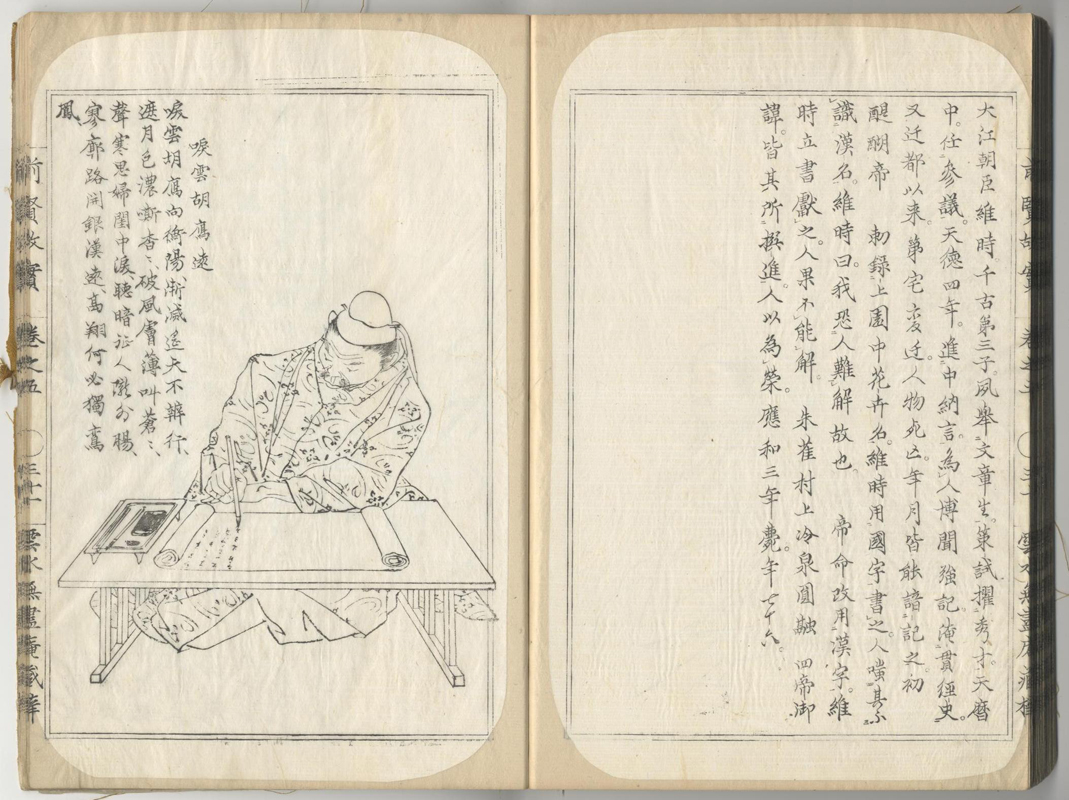 大江朝臣維時。千古第三子。夙舉文章生。策試擢秀才。天曆
中。任參議。天德四年。進中納言。為人博聞強記。淹貫經史。
又迁都以來。第宅変迁。人物死亡年月皆能諳記之。初
醍醐帝 刺錄上園中花卉名。維時用國字書之。人嗤其不
識漢名。維時曰。我恐人難解故也。 帝命改用漢字。維
時立書獻之。人果不能解。 朱雀村上冷泉圓融 四帝御
諱。皆其所撰進。人以為榮。應和三年薨。年七十六。
唳雲胡鴈遠
唳雲胡鴈向衡陽、漸滅遙天不辨行、
遮月色濃嘶杳〻、破風膚薄叫蒼〻、
聲寒思婦閨中淚、聽暗征人隴外腸、
寥廓路開銀漢遠、高翔何必獨鸞
鳳、
前賢故實 卷之五 〇 三十 雲水無盡庵藏梓